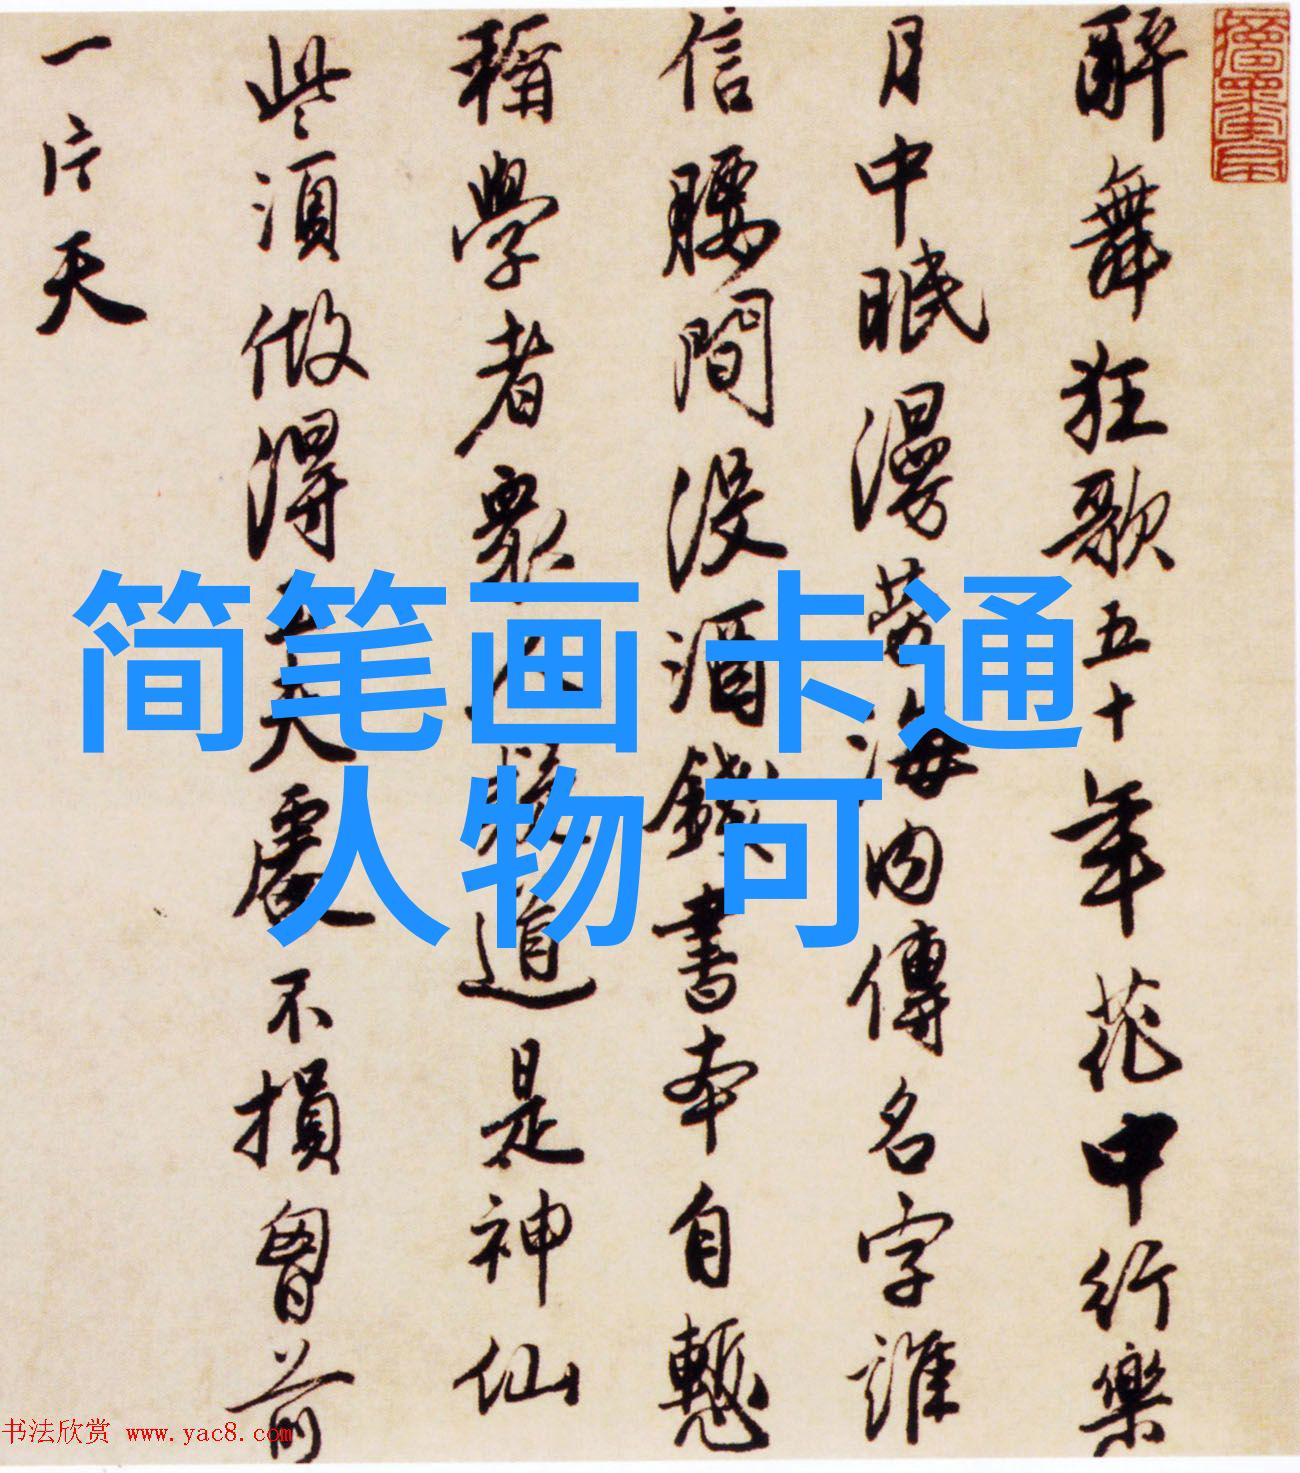 醉舞狂歌五十年花中行樂
月中眠漫勞海内傳名字誰
信腰間沒酒錢書本自慙
稱學者眾人疑道是神仙
些須做得工夫處不損胷前
一片天
简笔画 卡通
人物 可
书法欣赏 www.yac8.com